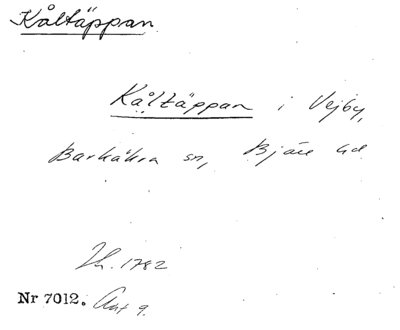 Kåltäppan
Kåltäppan i Vejby,
Barkåkra sn, Bjäre hd
1782
Nr 7012. 9.